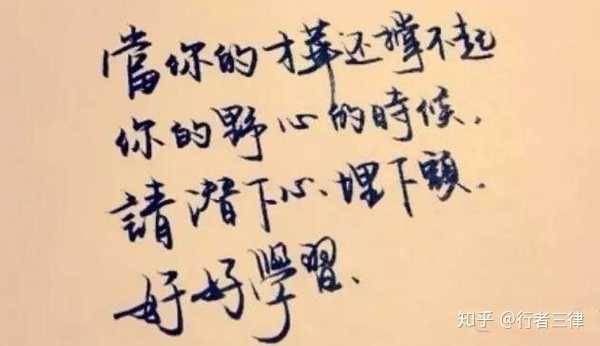 當你的才華还撑不起
你的野心的時候,
請潜下心、埋下頭,
好好學習、
知乎 @行者三律